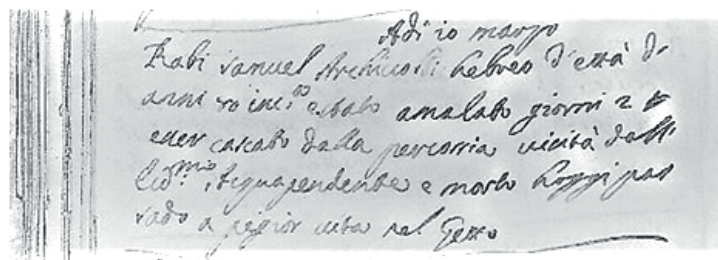 Adì 10 marzo
Rabi Samuel Archivolti hebreo d'ettà d'
anni 80 inc.ª è stato amalato giorni 2 p
esser cascato dalla percossia visità dall'
Acquapendente e morto hoggi pas
sado a pegior vita nel Getto